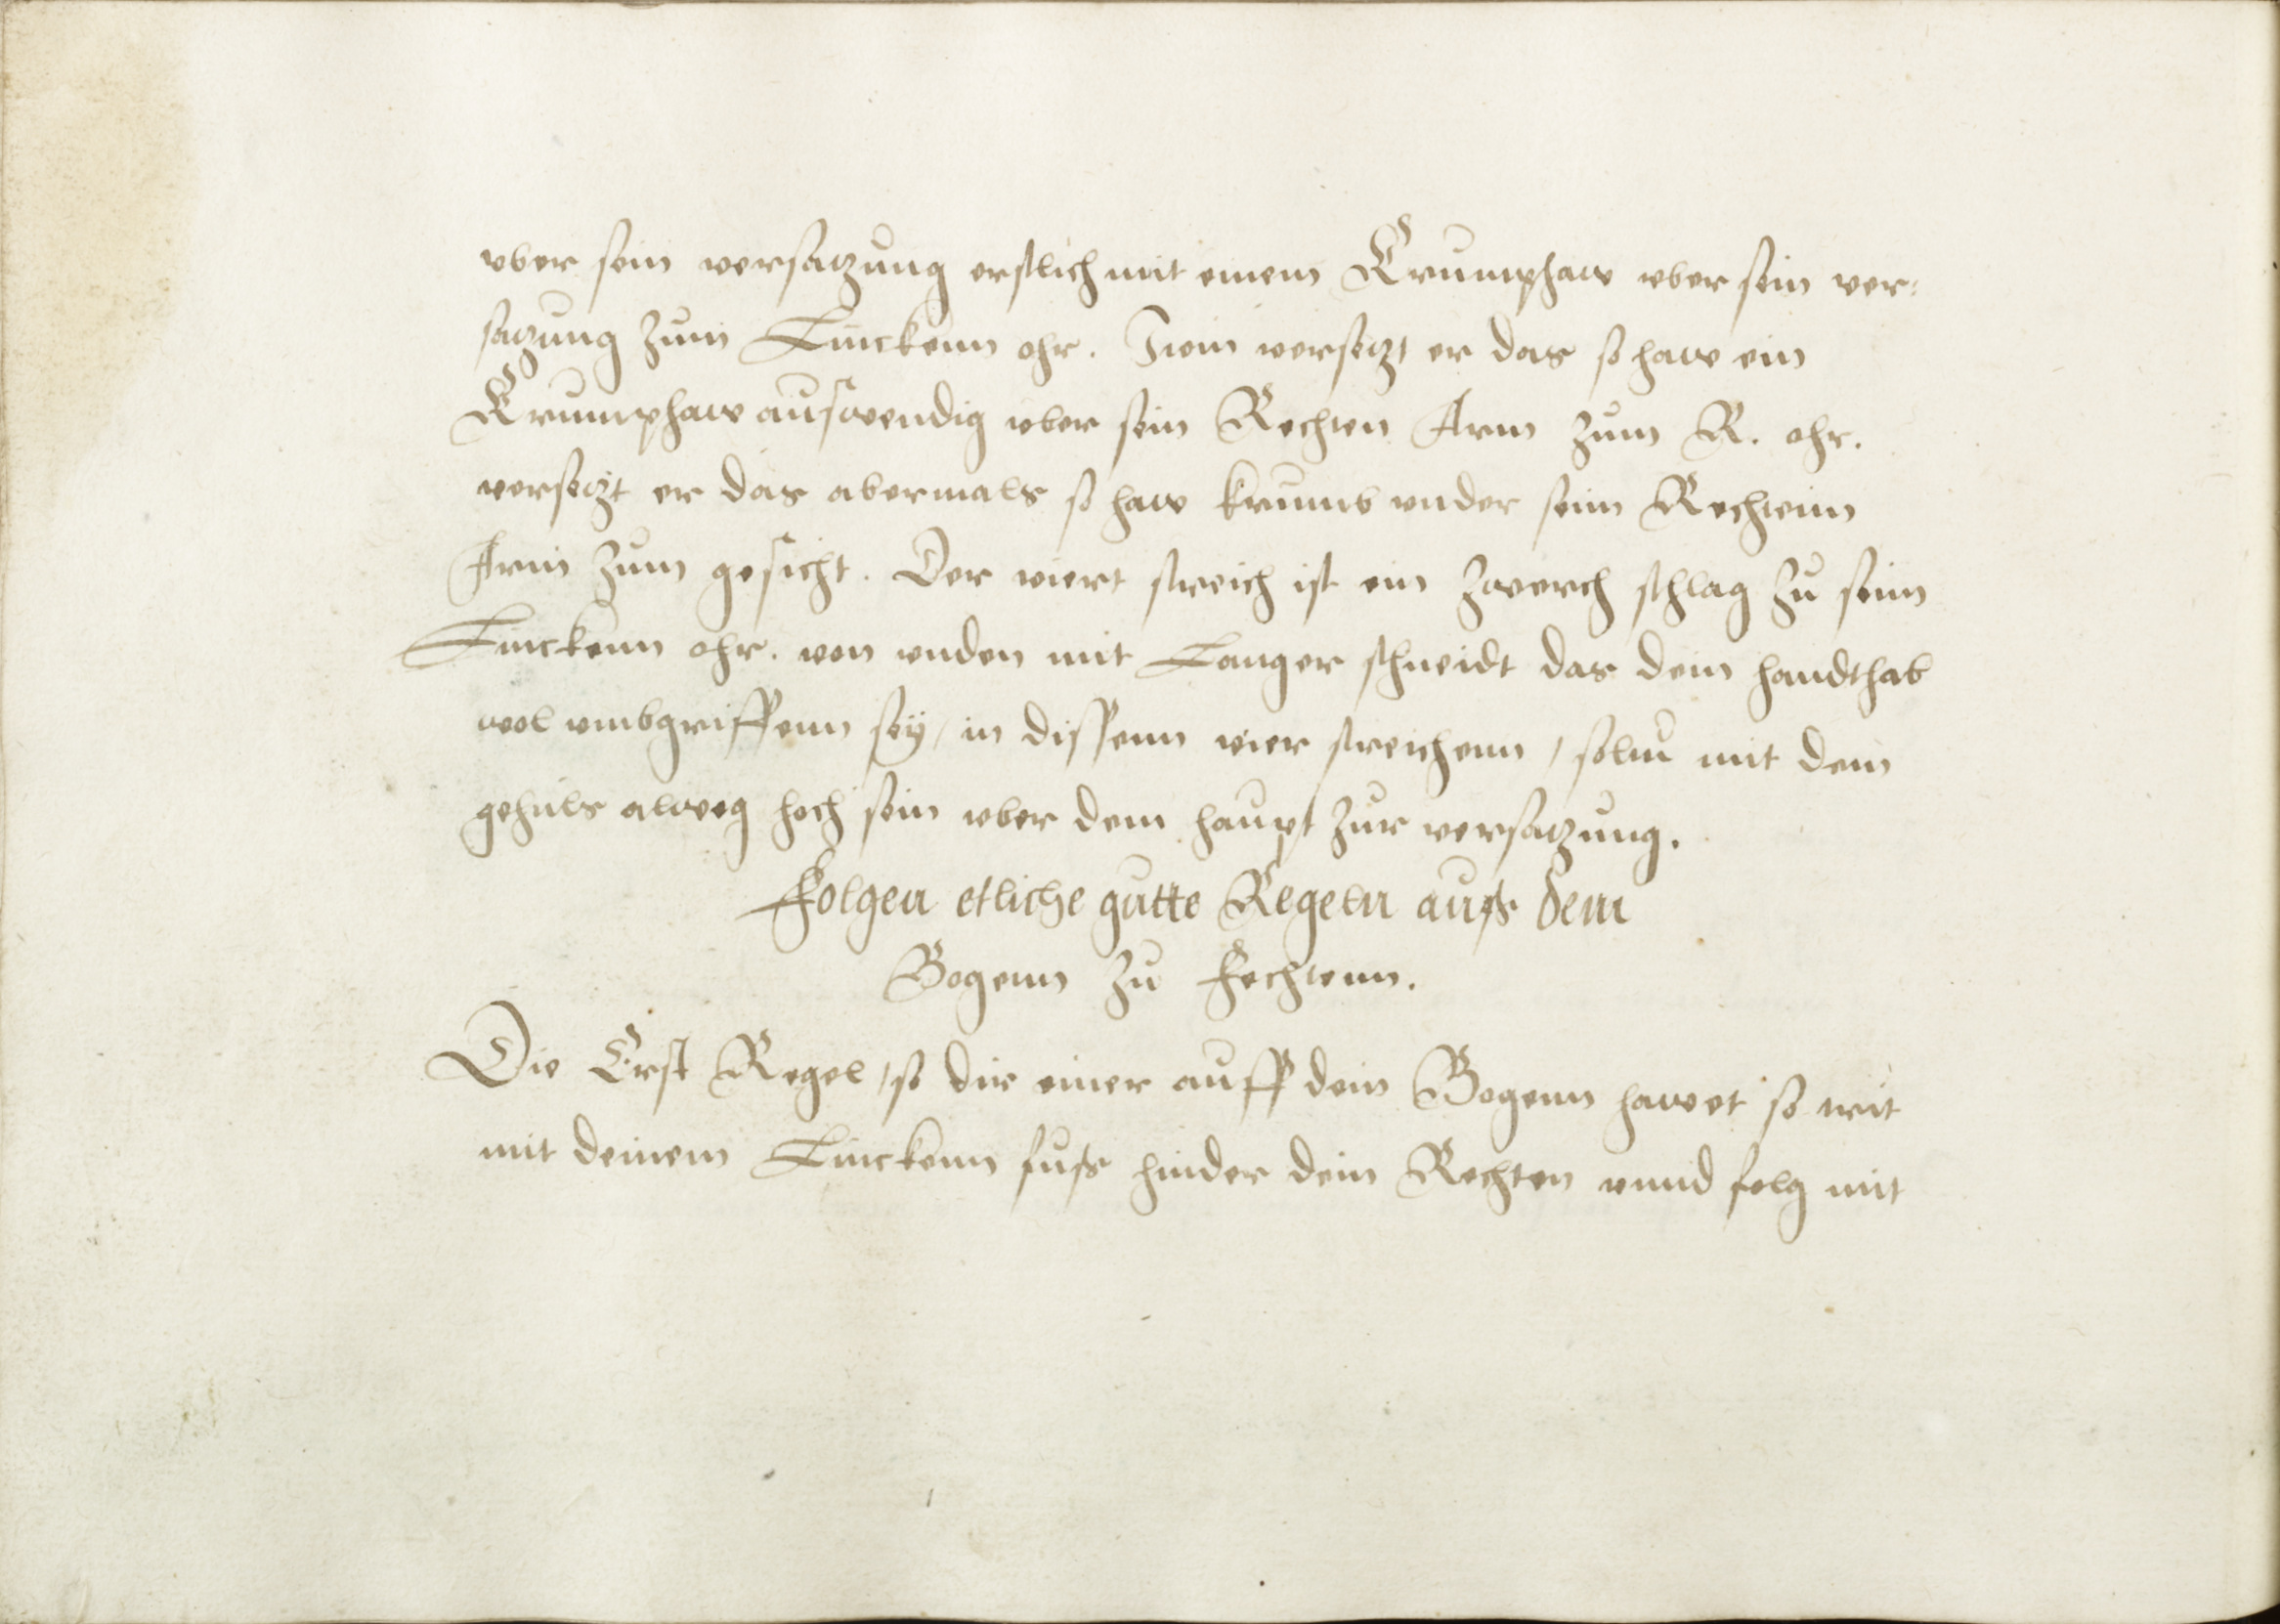 vber sein versatzung erstlich mit einem Krumphaw vber sein ver¬
satzung zum Linckenn ohr. Item versetzt er das so haw ein
Krumphaw auswendig vber sein Rechten Arm zum R. ohr.
versetzt er das abermals so haw krumb vnder seim Rechtenn
Arm zum gesicht. Der viert streich ist ein zwerch schlag zu seim
Linckenn ohr. von vnden mit Langer schneidt das dein handthab
wol vmbgriffenn seÿ, in dissenn vier streichenn, soltu mit dem
gehülz alweg hoch sein vber dem haupt zur versatzung.
Folgen etliche gutte Regeln auß dem
Bogenn zu Fechtenn.
Die Erst Regel, so dir einer auff dein Bogenn hawet so trit
mit deinem Linckenn fuß hinder dein Rechten vnnd folg mit